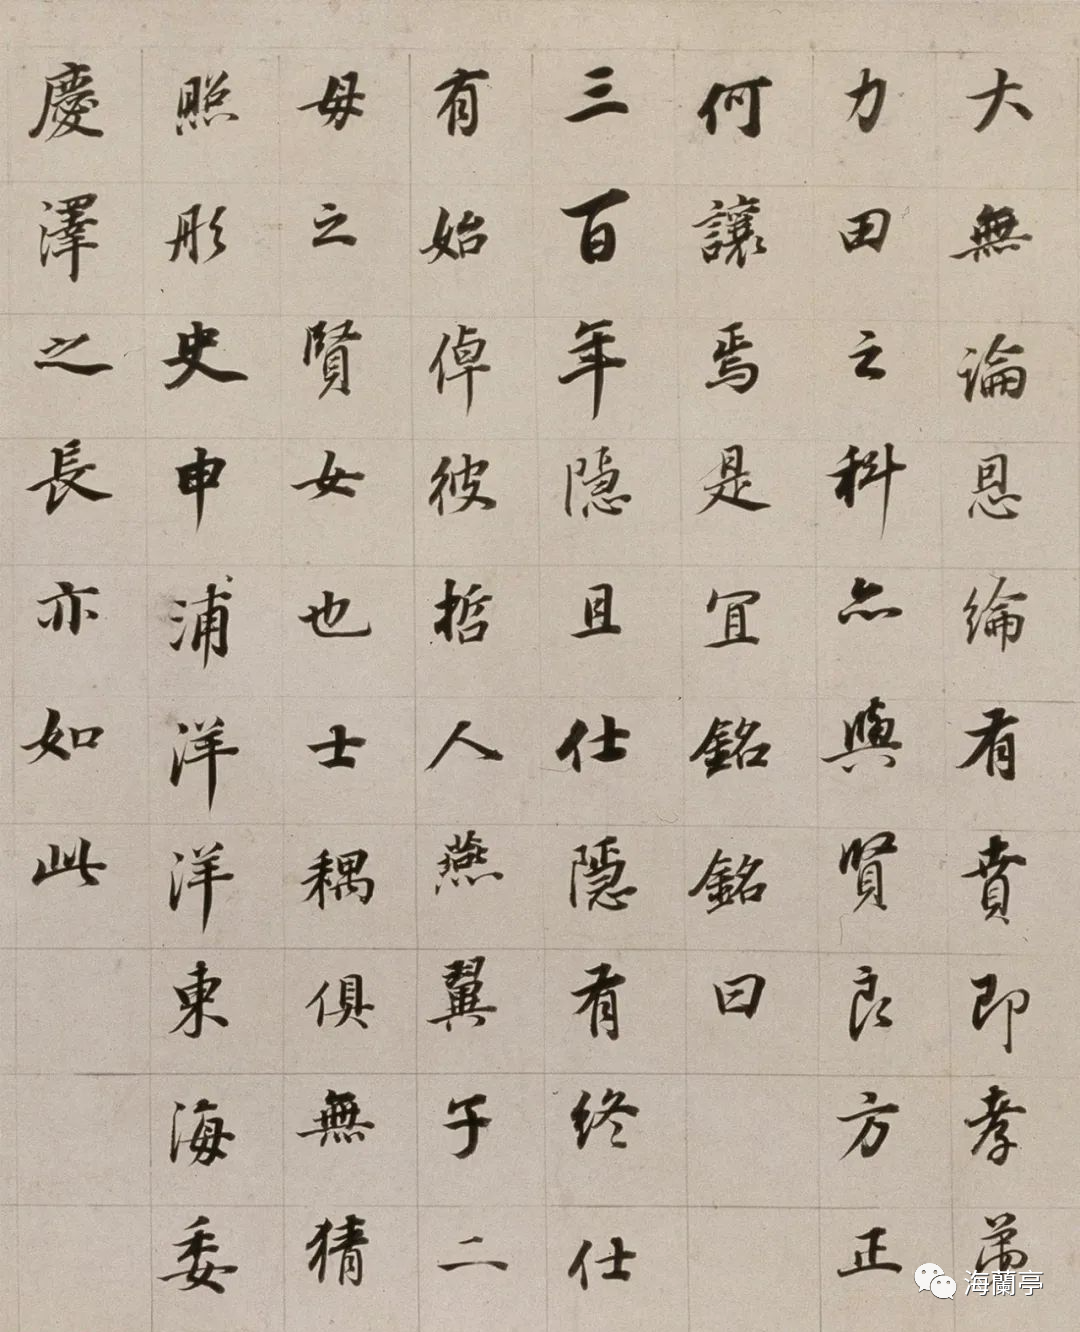 大無論恩綸有賁即孝弟
力田之科亦與賢良方正
何讓焉是宜銘銘曰
三百年隱且仕隱有終仕
有始倬彼哲人燕翼于二
母之賢女也士耦俱無猜
照彤史申浦洋洋東海委
慶澤之長亦如此
海蘭亭